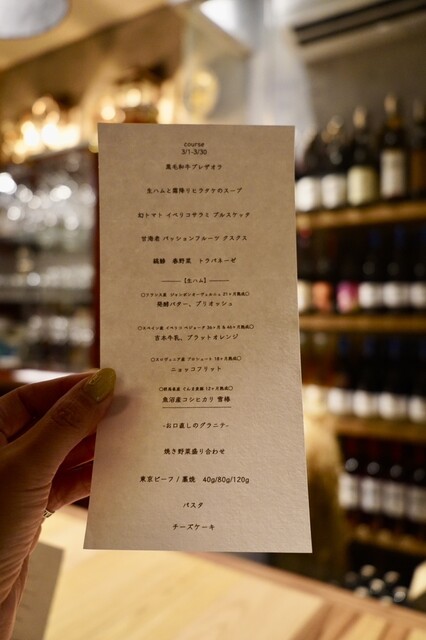 course
3/1-3/30
黒毛和牛ブレザオラ
生ハムと霜降りヒラタケのスープ
幻トマト イベリコサラミ ブルスケッタ
甘海老 パッションフルーツ クスクス
春野菜 トラパネーゼ
【生ハム】
○フランス産 ジャンボンオーヴェルニュ 21ヶ月熟成○
発酵バター、ブリオッシュ
○スペイン産 イベリコ ベジョータ 36ヶ月&48ヶ月熟成○
吉本牛乳、ブラッドオレンジ
○スロヴェニア産 プロシュート 18ヶ月熟成○
ニョッコフリット
○群馬県産 ぐんま麦豚 12ヶ月熟成○
魚沼産コシヒカリ 雪椿
-お口直しのグラニテ-
焼き野菜盛り合わせ
東京ビーフ / 藁焼 40g/80g/120g
パスタ
チーズケーキ